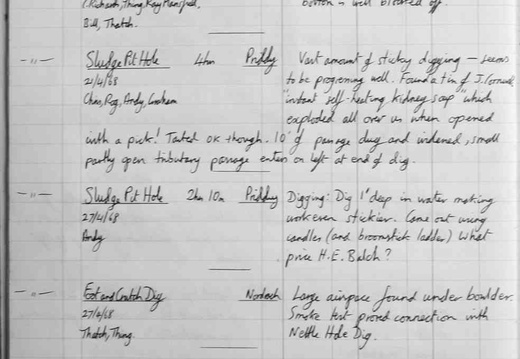 C. Richards, Thing, Kay Mansfield,
Bill, Thatch.
bottom is well blocked off.
- " - Sludge Pit Hole 4hrs Priddy Vast amount of sticky digging – seems
21/4/68 to be progressing well. Found a tin of J. Cornwell
Chris, Rog, Andy, Graham "instant self-heating kidney soup" which
exploded all over us when opened
with a pick! Tasted OK though. 10' of passage dug and widened, small
partly open tributary passage enters on left at end of dig.
- " - Sludge Pit Hole 2hrs 10m Priddy Digging: Dig 1' deep in water making
27/4/68 work even stickier. Came out using
Andy candles (and broomstick ladder) What
price H.E. Balch?
- " - Foot and Crutch Dig Nordrach Large airspace found under boulder.
27/4/68 Smoke test proved connection with
Thatch, Thing. Nettle Hole Dig.